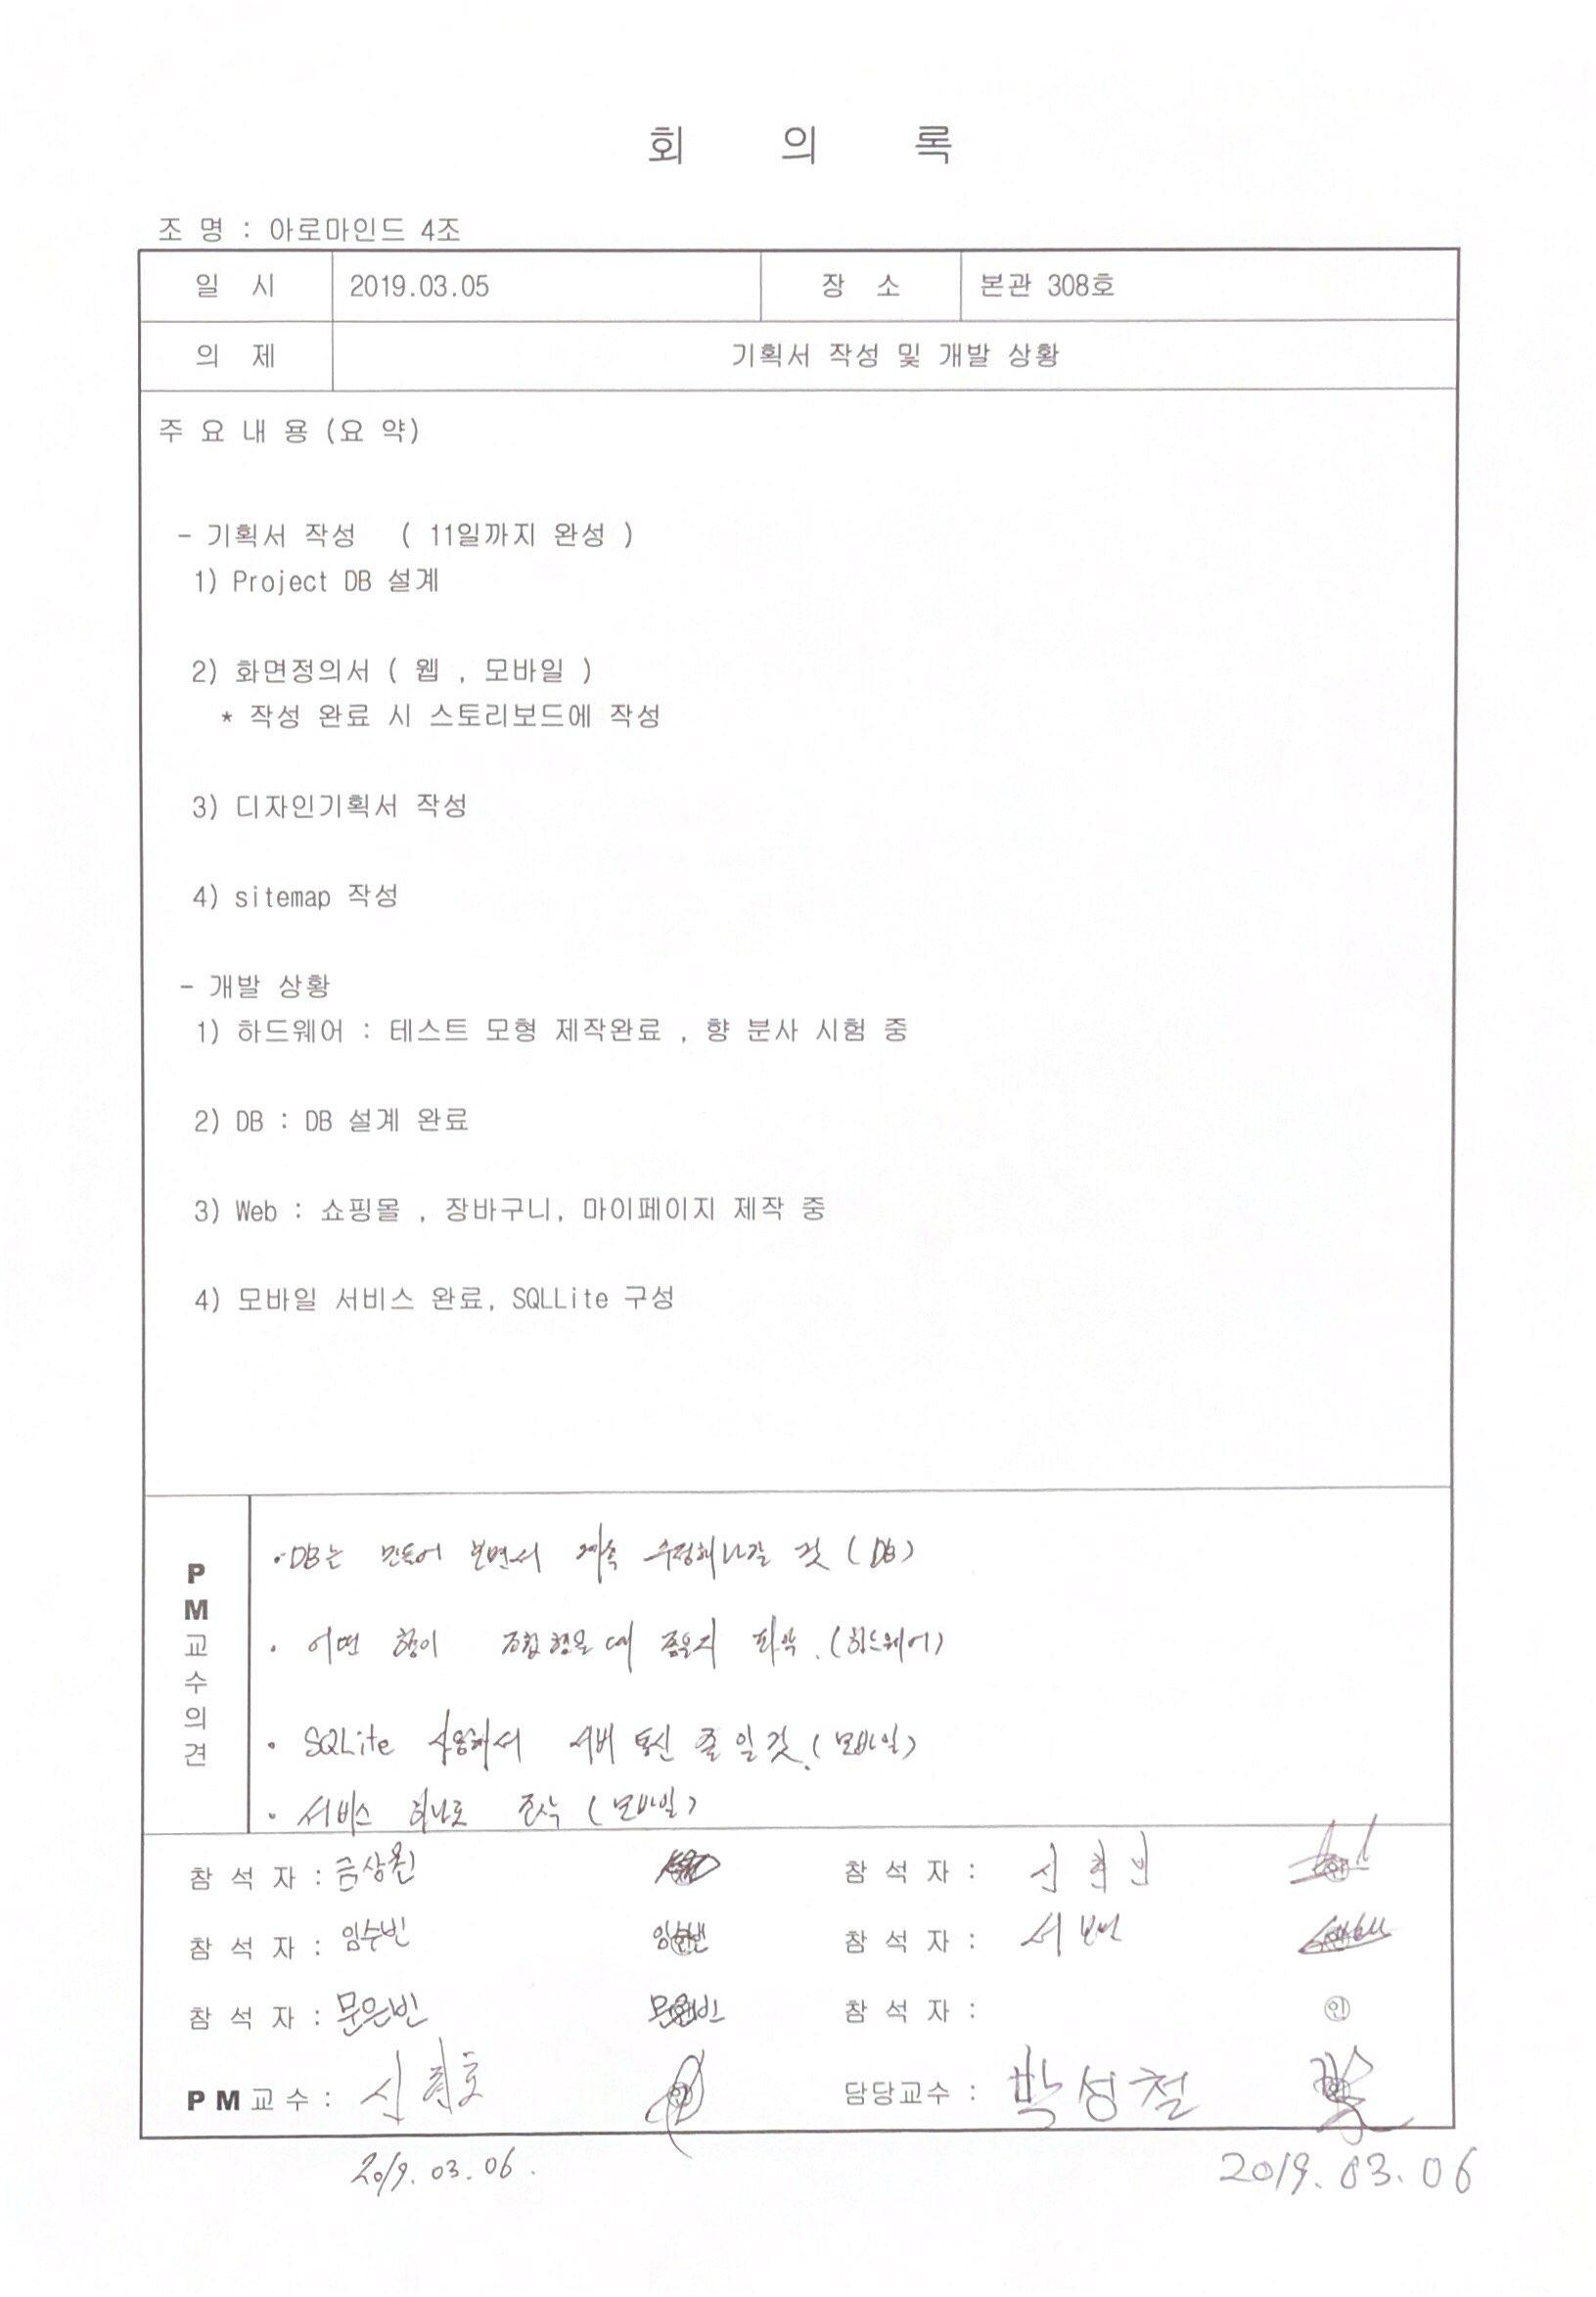 회 의 록
조 명 : 아로마인드 4조
일 시 2019.03.05 장 소 본관 308호
의 제 기획서 작성 및 개발 상황
주 요 내 용 (요 약)
- 기획서 작성 ( 11일까지 완성 )
1) Project DB 설계
2) 화면정의서 ( 웹 , 모바일 )
* 작성 완료 시 스토리보드에 작성
3) 디자인기획서 작성
4) sitemap 작성
- 개발 상황
1) 하드웨어 : 테스트 모형 제작완료 , 향 분사 시험 중
2) DB : DB 설계 완료
3) Web : 쇼핑몰 , 장바구니, 마이페이지 제작 중
4) 모바일 서비스 완료, SQLLite 구성
PM교수의견
·DB는 만들어 보면서 계속 수정해나갈 것 (DB)
· 어떤 향이 조합했을 때 좋을지 파악. (하드웨어)
· SQLite 사용해서 서버 통신 줄일것. (모바일)
· 서비스 하나로 (모바일)
참 석 자 : 금상원 참 석 자 :
참 석 자 : 임수빈 임수빈 참 석 자 : 서
참 석 자 : 문은빈 문은빈 참 석 자 : 인
PM교수 : 신 인 담당교수 : 박성철
2019. 03. 06. 2019. 03. 06